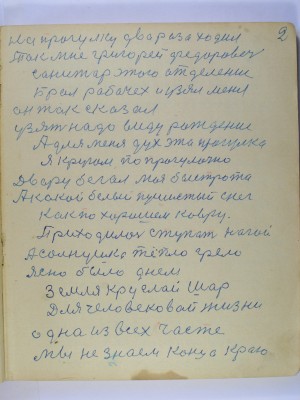 2
на прогулку два раза ходил
Так мне григорей федоровоч
санитар этого атделения
Брал рабачех и узял меня
он так сказал
узят надо виду рождение
А для меня дух эта прогулка
я кругом по прогулочно
двару бегал моя быстрота
А какой белый пушистый снег
Как по хорошем ковру.
Приходилос ступат ногой
А солнушко тёпло грело
Ясно было днем
Земля круглай шар
Для человековой жизни
одна из всех часте
мы не знаем конца краю